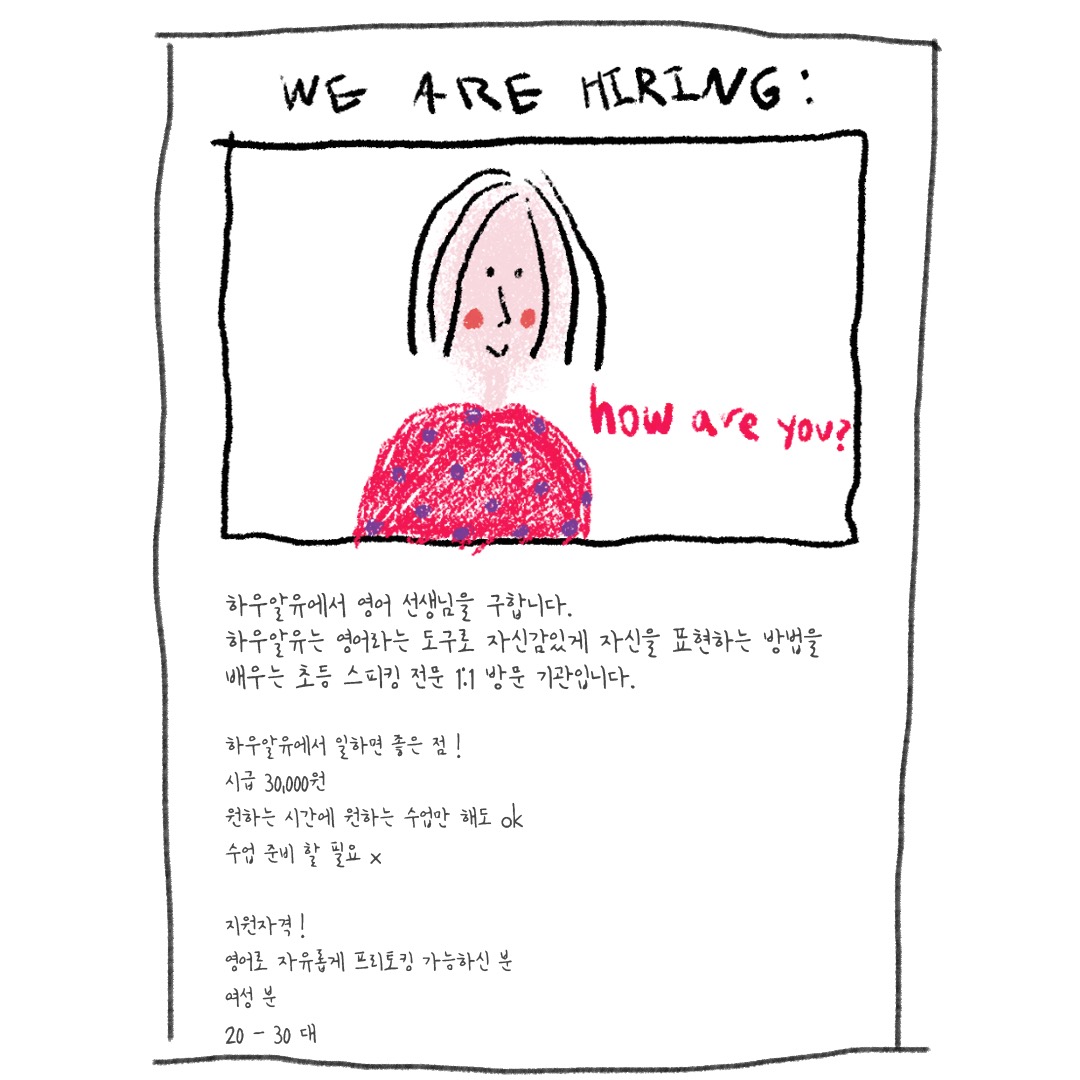 WE ARE HIRING:
how are you?
하우알유에서 영어 선생님을 구합니다.
하우알유는 영어라는 도구로 자신감있게 자신을 표현하는 방법을
배우는 초등 스피킹 전문 1:1 방문 기관입니다.
하우알유에서 일하면 좋은 점!
시급 30,000원
원하는 시간에 원하는 수업만 해도 ok
수업 준비 할 필요 x
지원자격!
영어로 자유롭게 프리토킹 가능하신 분
여성 분
20 - 30 대